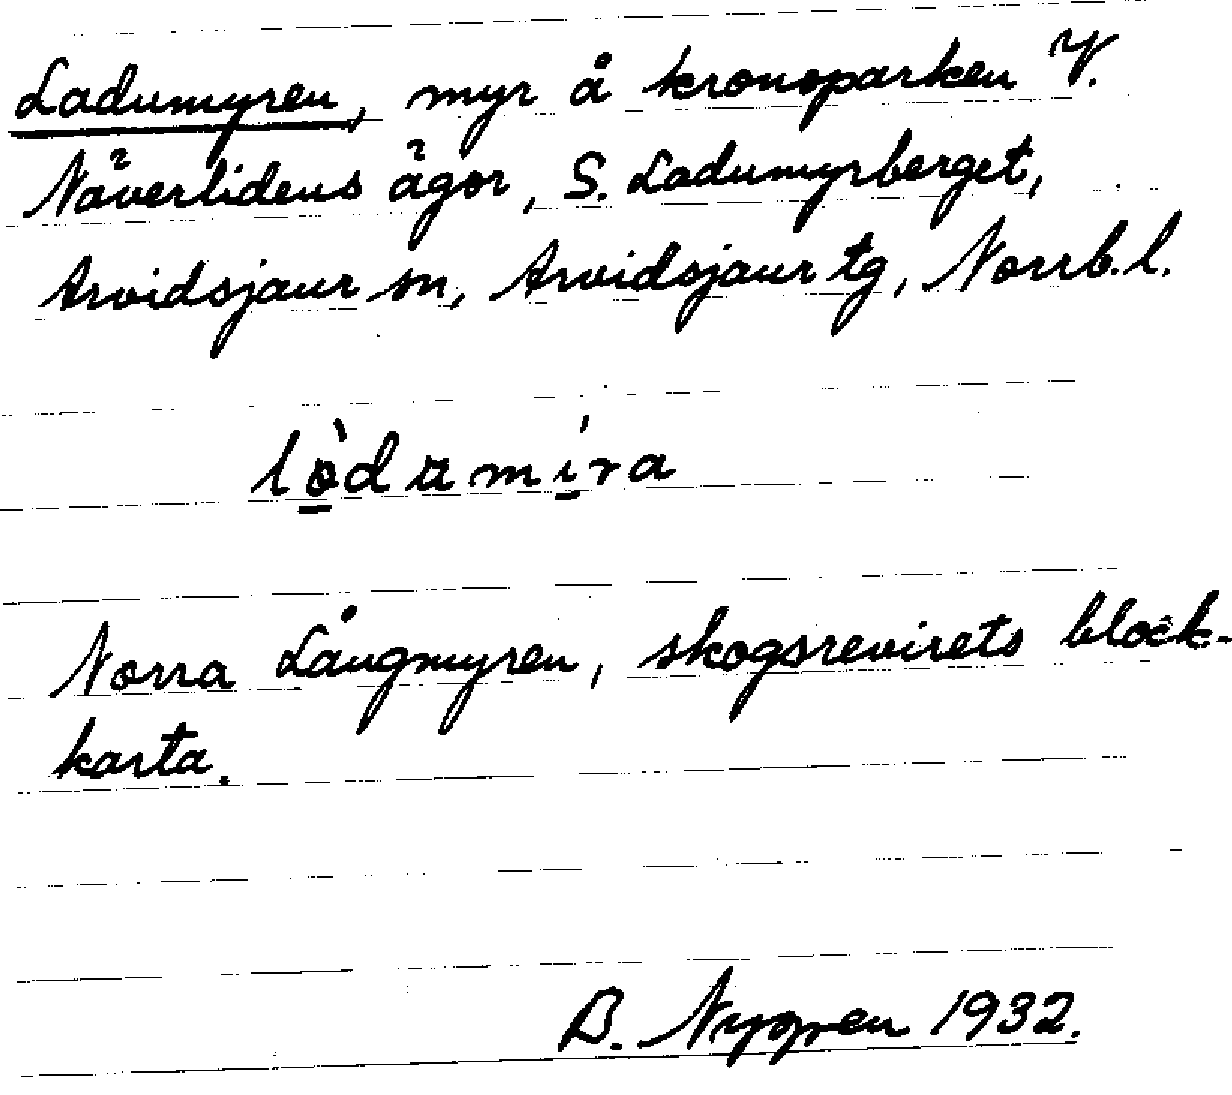 Ladumyren, myr å kronoparken V.
Näverlidens ägor, S. Ladumyrberget,
Arvidsjaur sn, Arvidsjaur tg, Norrb.l.
lòdamíra
Norra Långmyren, skogsrevirets block-
karta.
B. Nygren 1932.